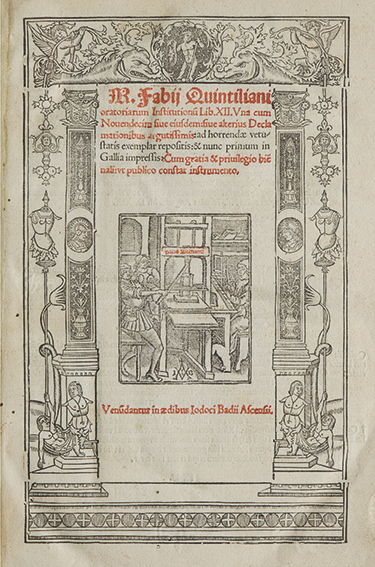 M. Fabij Quintiliani
oratoriarum Institutionũ Lib. XII. Vna cum
Nouendecim siue eiusdem: siue alterius Decla
mationibus argutissimis: ad horrendæ vetu
statis exemplar repositis: & nunc primum in
Gallia impressis: Cum gratia & priuilegio biẽ
nali: vt publico constat instrumento,
Venundantur in ædibus Iodoci Badii Ascensii.